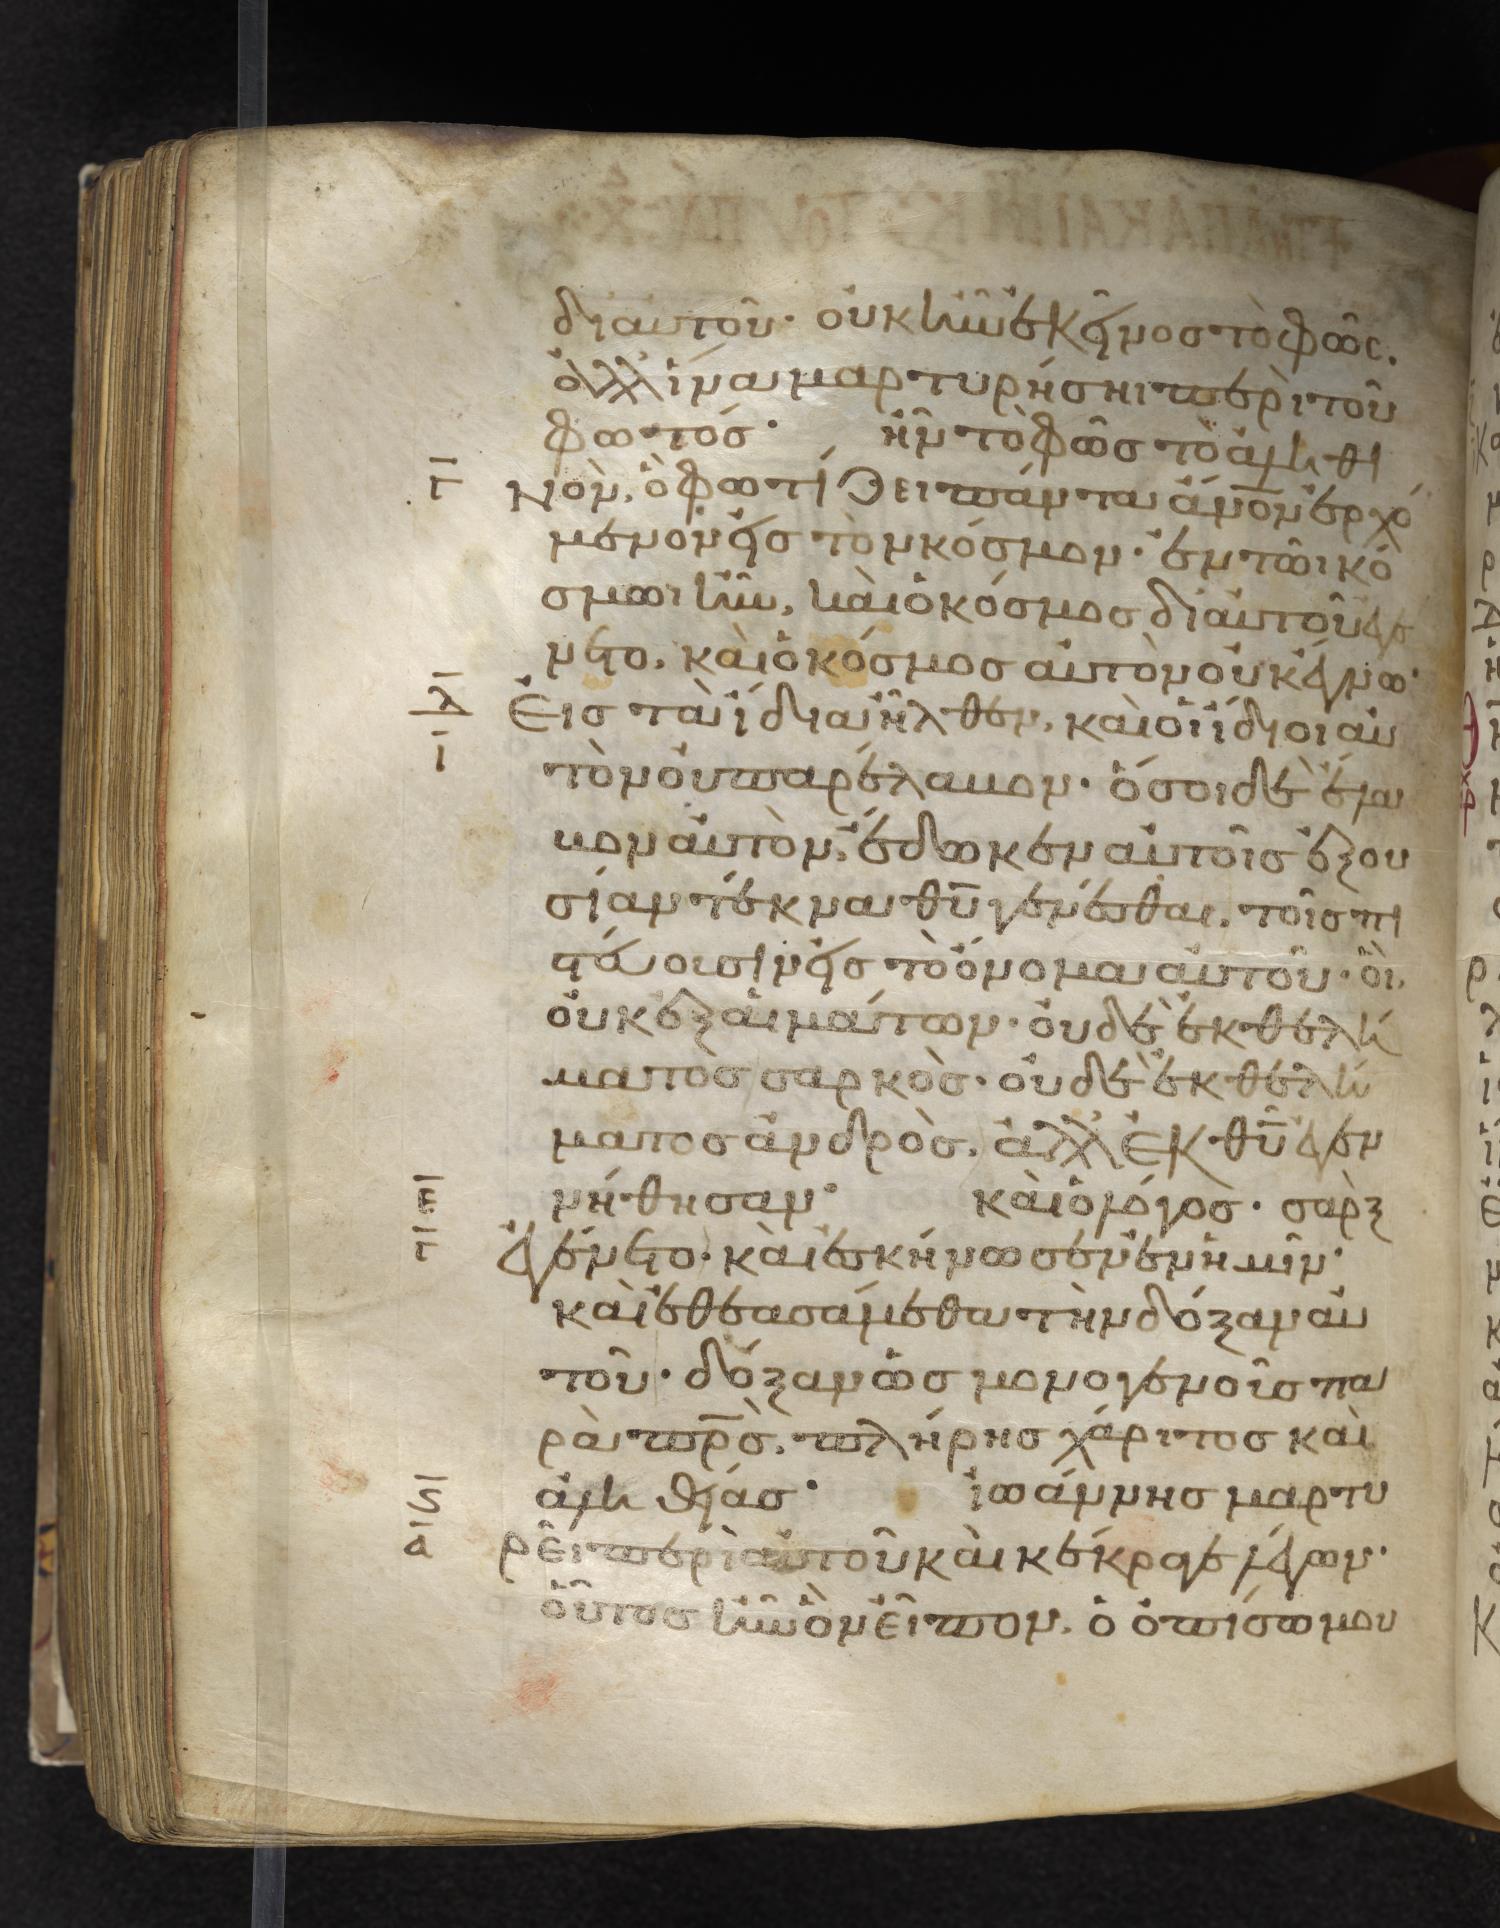 δι αυτοῦ· οὐκ ἦν ἐκεῖνος τὸ φῶς.
ἀλλ ἵνα μαρτυρήσηι περὶ τοῦ
φωτός· ἦν τὸ φῶς τὸ ἀληθι
Γ Νὸν, ὃ φωτίζει πάντα ἄνον ἐρχό
μενον εἰς τὸν κόσμον· ἐν τῶι κό
σμωι ἦν, καὶ ὁ κόσμος δι αὐτοῦ ἐγέ
νετο, καὶ ὁ κόσμος αὐτὸν οὐκ ἔγνω·
Δ Εἰς τὰ ἴδια ἦλθεν, καὶ οἱ ἴδιοι αὐ
Ι
τὸν οὐ παρέλαβον· ὅσοι δὲ ἔλα
βον αὐτὸν, ἔδωκεν αὐτοῖς ἐξου
σίαν τέκνα θῦ γενέσθαι. τοῖς πι
στεύουσιν εἰς τὸ ὄνομα αὐτοῦ· οἳ,
οὐκ ἐξ αἱμάτων· οὐδὲ ἐκ θελή
ματὸς σαρκὸς· οὐδὲ ἐκ θελή
ματος ἀνδρὸς, ἀλλ ἐκ θῦ ἐγεν
Ε νήθησαν· καὶ ὁ λόγος· σὰρξ
Γ ἐγένετο· καὶ ἐσκήνωσεν ἐν ἡμῖν·
καὶ ἐθεασάμεθα τὴν δόξαν αὐ
τοῦ· δόξαν ὡς μονογενοῖς πα
ρὰ πρς, πλήρης χάριτος καὶ
Ϛ ἀληθείας· ἰωάννης μαρτυ
Α ρεῖ περὶ αὐτοῦ καὶ κέκραγε λέγων·
οὗτος ἦν ὃν εἶπον, ὁ ὀπίσω μου